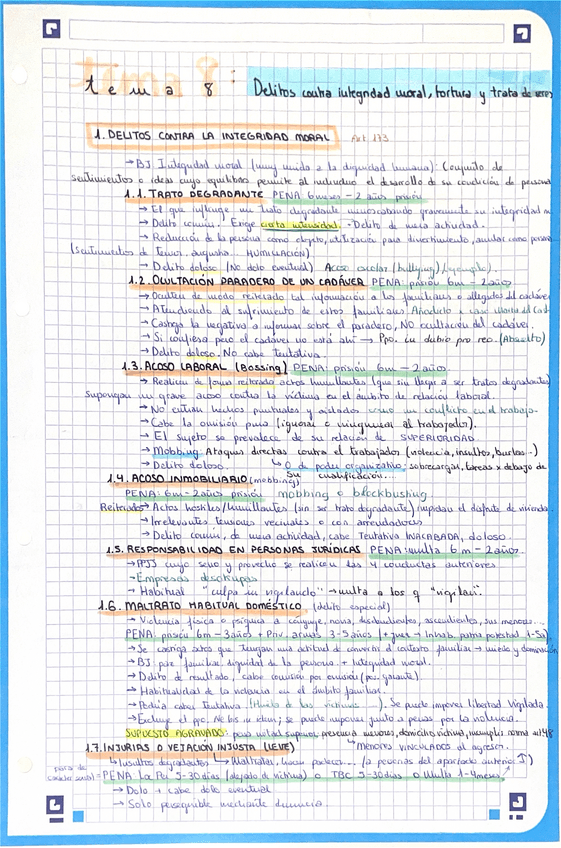 Tema 8:
tema 8 Delitos contra integridad moral, tortura y trata de seres
1. DELITOS CONTRA LA INTEGRIDAD MORAL Art 173
→ BJ Integridad moral (muy unida a la dignidad humana): Conjunto de
sentimientos o ideas cuyo equilibrio permite al individuo el desarrollo de su condición de persona
1.1. TRATO DEGRADANTE PENA: 6 meses - 2 años prisión
→ El que inflinge un trato degradante menoscabando gravemente su integridad m
→ Delito común. Exige cierta intensidad. → Delito de mera actividad.
→ Reducción de la persona como objeto, utilización para divertimento, anular como persona
(sentimientos de temor, angustia.. HUMILLACIÓN)
→ Delito doloso (No dolo eventual) Acoso escolar (bullying) (ejemplo).
1.2. OCULTACIÓN PARADERO DE UN CADÁVER PENA: prisión 6m - 2 años
→ Oculten de modo reiterado tal información a los familiares o allegados del cadáver
→ Atendiendo al sufrimiento de estos familiares
→ Castiga la negativa a informar sobre el paradero, NO ocultación del cadáver.
→ Si confiesa pero el cadáver no está ahí → Ppo. in dubio pro reo. (Absuelto)
→ Delito doloso. No cabe tentativa.
1.3. ACOSO LABORAL (Bossing) PENA: prisión 6m - 2 años
→ Realicen de forma reiterada actos humillantes (que sin llegar a ser tratos degradantes)
supongan un grave acoso contra la víctima en el ámbito de relación laboral.
→ No entran hechos puntuales y aislados como un conflicto en el trabajo.
→ Cabe la omisión pura (ignorar o ningunear al trabajador).
→ El sujeto se prevalece de su relación de SUPERIORIDAD
→ Mobbing: Ataques directos contra el trabajador (violencia, insultos, burlas...)
→ Delito doloso. ↳ O de poder organizativo: sobrecargas, tareas x debajo de
su cualificación...
1.4. ACOSO INMOBILIARIO (mobbing)
PENA: 6m - 2 años prisión mobbing o blockbusting
Reiterados → Actos hostiles/humillantes (sin ser trato degradante) impidan el disfrute de vivienda.
→ Irrelevantes tensiones vecinales o con arrendadores
→ Delito común, de mera actividad, cabe Tentativa INACABADA, doloso.
1.5. RESPONSABILIDAD EN PERSONAS JURÍDICAS PENA: multa 6m - 2 años.
→ PPJJ cuyo seno y provecho se realicen las 4 conductas anteriores
→ Empresas desokupas
→ Habitual "culpa in vigilando" → multa a los q "vigilan".
1.6. MALTRATO HABITUAL DOMÉSTICO (delito especial)
→ Violencia física o psíquica a cónyuge, novia, descendientes, ascendientes, sus menores...
PENA: prisión 6m - 3 años + Priv. armas 3-5 años (+ juez → Inhab. patria potestad 1-5a).
→ Se castiga actos que tengan una actitud de convertir el contexto familiar → miedo y dominación
→ BJ: paz familiar, dignidad de la persona + Integridad moral.
→ Delito de resultado, cabe comisión por omisión (pos. garante).
→ Habitualidad de la violencia en el ámbito familiar.
→ Podría caber Tentativa Se puede imponer libertad vigilada.
→ Excluye el ppo. Ne bis in idem; se puede imponer junto a penas por la violencia.
SUPUESTO AGRAVADO: pena mitad superior: presencia menores, domicilio víctima, incumpla norma art 48
1.7. INJURIAS O VEJACIÓN INJUSTA (LEVE) ↳ MENORES VINCULADOS al agresor.
↳ Insultos degradantes ↳ Maltratar, hacer padecer... (a personas del apartado anterior ↑)
= PENA: Loc Per 5-30 días (alejado de víctima) o TBC 5-30 días o Multa 1-4 meses
→ Dolo + cabe dolo eventual
→ Solo perseguible mediante denuncia.